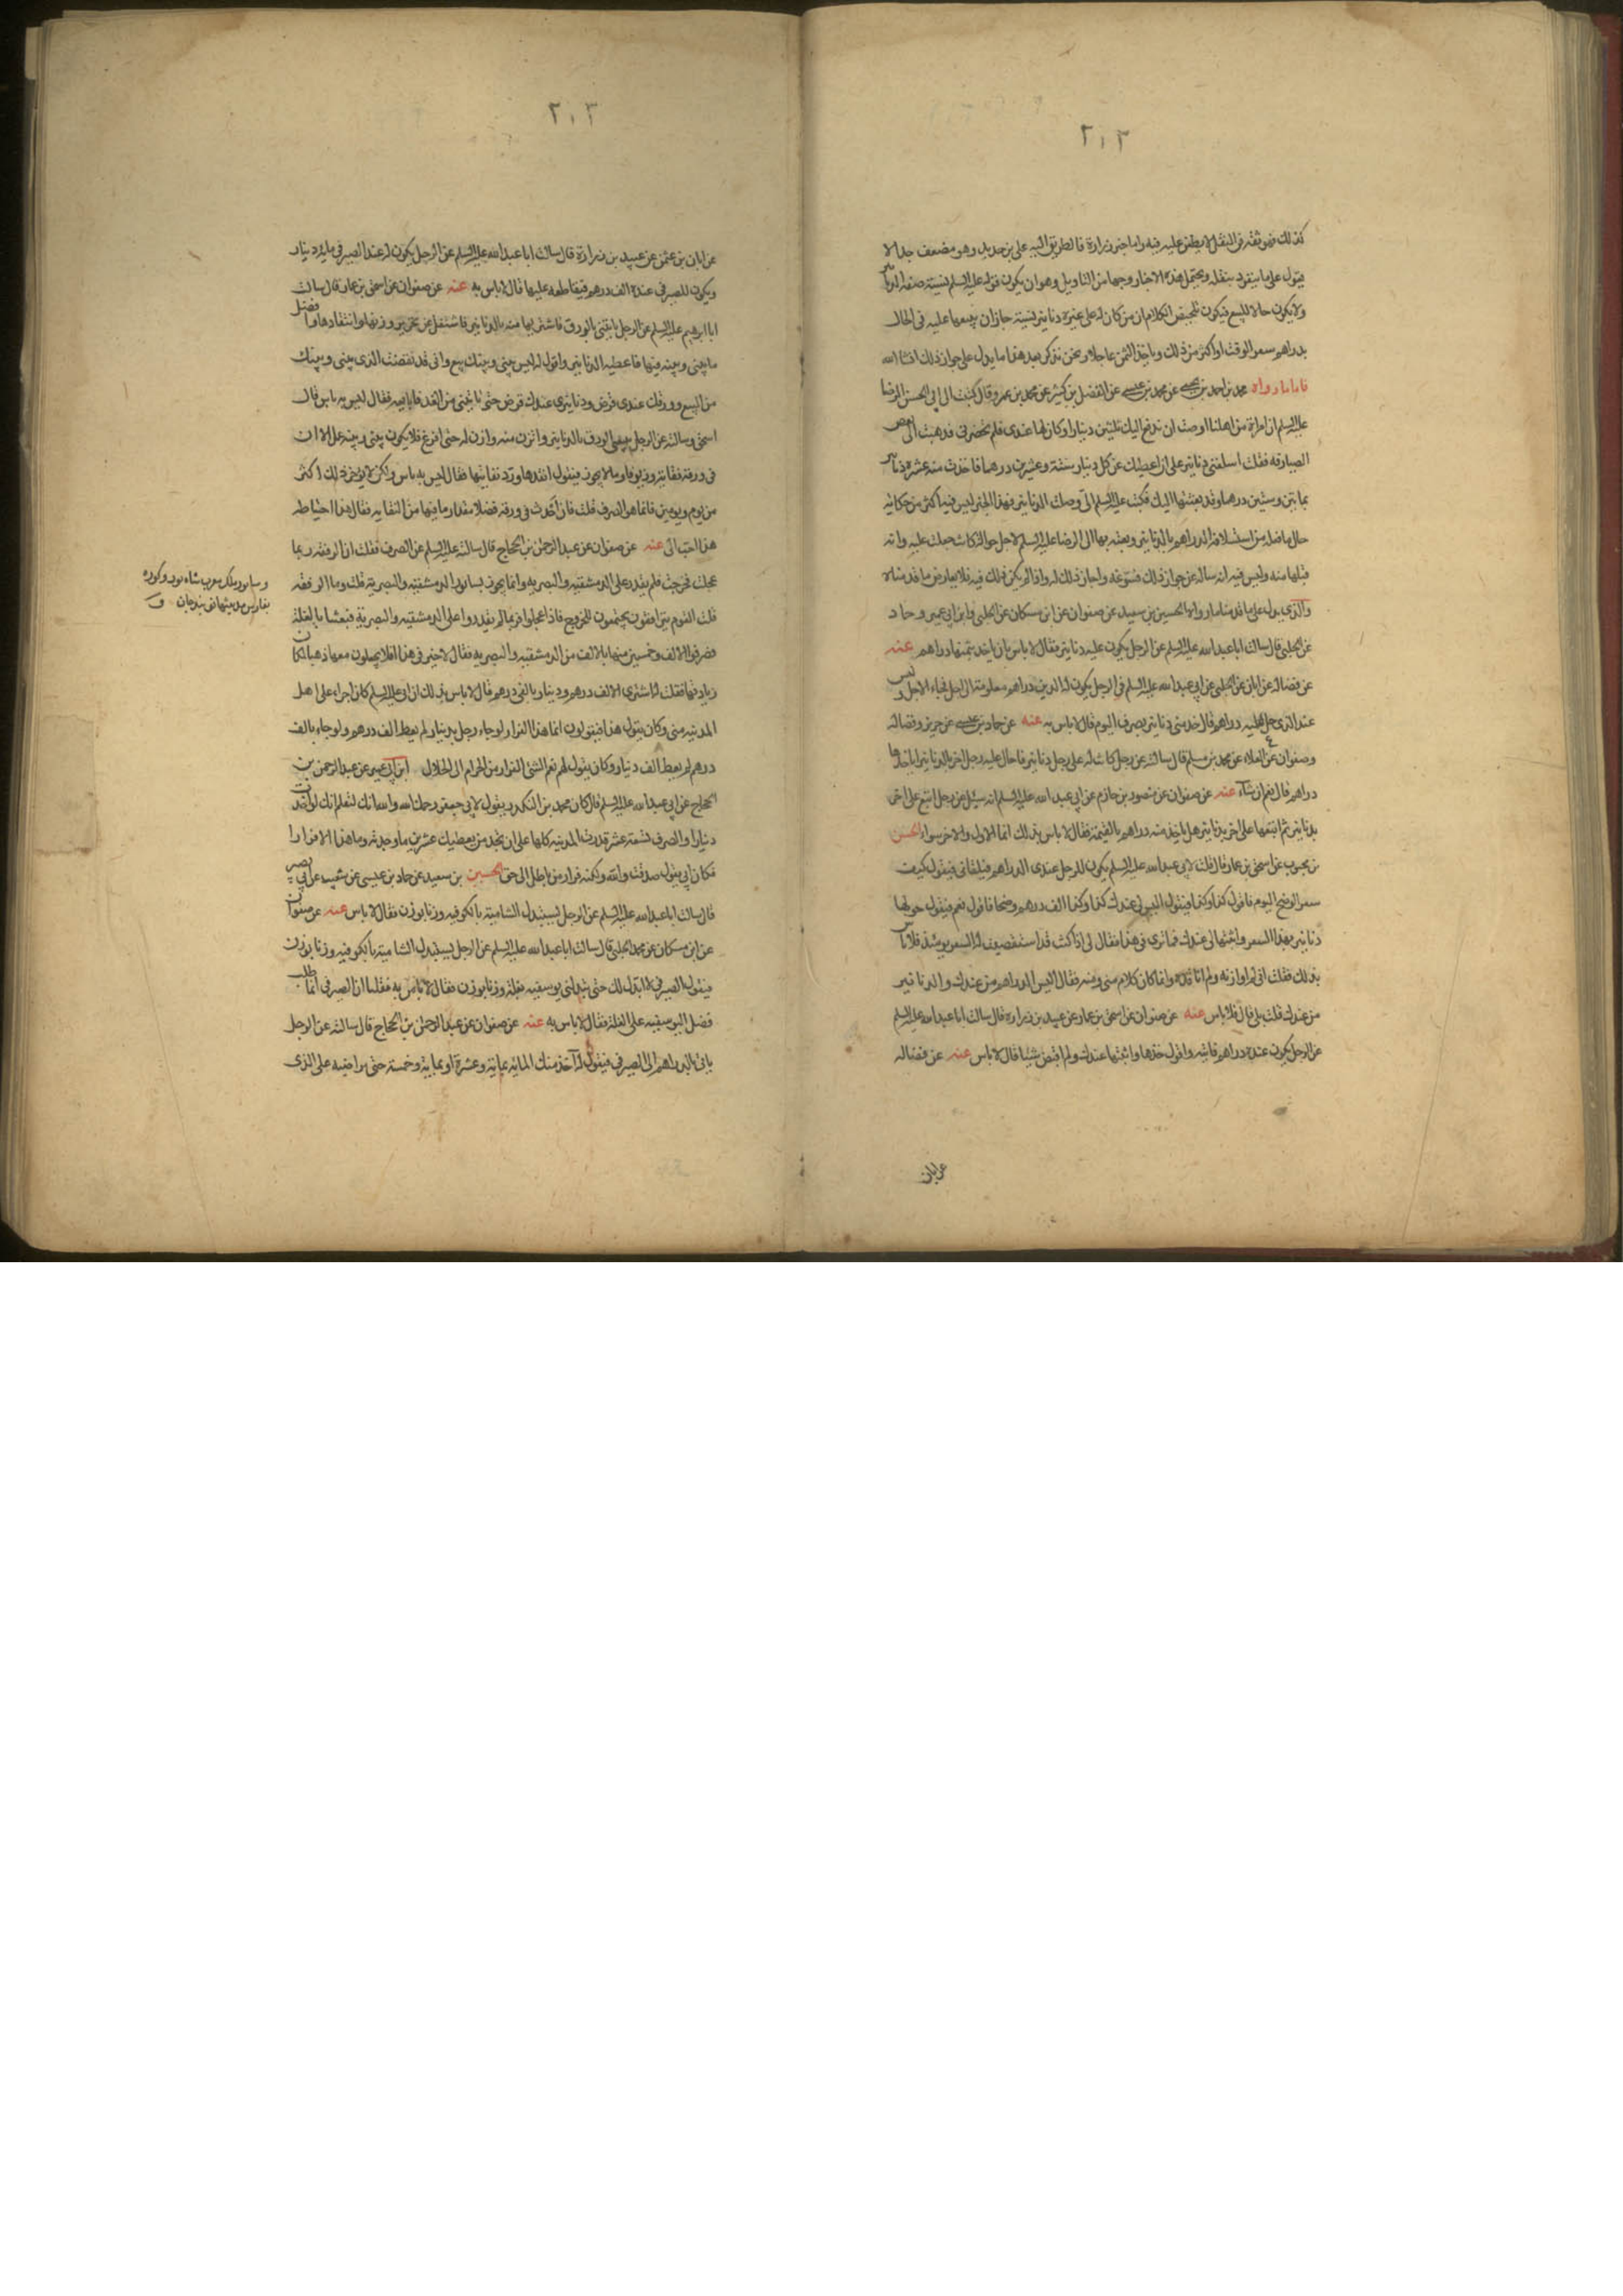 ٢٠٢
كذلك فهو ثقة في النقل لا يطعن عليه فيه واما خبر زرارة فالطريق اليه علي بن حديد وهو مضعف جدا لا
يعول على ما ينفرد بنقله ويحتمل هذه الاخبار وجها من التاويل وهو ان يكون قوله عليه السلم نسيئة صفة الدنانير
ولا يكون حالا للبيع فيكون تلخيص الكلام ان من كان له على غيره دنانير نسيئة جاز ان يبيعها عليه في الحال
بدراهم سعر الوقت او اكثر من ذلك وياخذ الثمن عاجلا ونحن نذكر بعد هذا ما يدل على جواز ذلك انشا الله
فاما ما رواه محمد بن احمد بن يحيى عن محمد بن عيسى عن الفضل بن كثير عن محمد بن عمرو قال كتبت الى ابي الحسن الرضا
عليه السلم ان امراة من اهلنا اوصت ان ندفع اليك ثلثين دينارا وكان لها عندى فلم يحضرني فذهبت الى بعض
الصيارفه فقلت اسلفني دنانير على ان اعطيك عن كل دينار ستة وعشرين درهما فاخذت منه عشرة دنانير
بمايتين وستين درهما وقد بعثتها اليك فكتب عليه السلم الى وصلت الدنانير فهذا الخبر ليس فيه اكثر من حكاية
حال ما فعله من استسلافه الدراهم بالدنانير وبعثه بها الى الرضا عليه السلم لاجل حوالة كانت جعلت عليه وانه
قبلها منه وليس فيه انه ساله عن جواز ذلك فسوغه واجاز ذلك له واذا لم يكن ذلك فيه فلا يعارض ما قدمناه
والذى يدل على ما قدمناه ما رواه الحسين بن سعيد عن صفوان عن ابن مسكان عن الحلبي وابن ابي عمير وحماد
عن الحلبي قال سالت ابا عبد الله عليه السلم عن الرجل يكون عليه دنانير فقال لا باس بان ياخذ بثمنها دراهم عنه
عن فضالة عن ابان عن الحلبي عن ابي عبد الله عليه السلم في الرجل يكون له الدين دراهم معلومة الى اجل فجاء الاجل وليس
عند الذى حل عليه دراهم قال خذ منى دنانير بصرف اليوم قال لا باس به عنه عن حماد بن عيسى عن حريز وفضالة
وصفوان عن العلاء عن محمد بن مسلم قال سالته عن رجل كانت له على رجل دنانير فاحال عليه رجل اخر بالدنانير اياخذها
دراهم قال نعم ان شاء عنه عن صفوان عن منصور بن حازم عن ابي عبد الله عليه السلم انه سئل عن رجل اتبع على اخر
بدنانير ثم اتبعها على اخر بدنانير هل ياخذ منه دراهم بالقيمة فقال لا باس بذلك انما الاول والاخر سواء الحسن
بن محبوب عن اسحق بن عمار قال قلت لابي عبد الله عليه السلم يكون للرجل عندى الدراهم فيلقاني فيقول كيف
سعر الوضح اليوم فاقول كذا وكذا فيقول اليس لي عندك كذا وكذا الف درهم وضحا فاقول نعم فيقول حولها
دنانير بهذا السعر واثبتها لي عندك فما ترى في هذا فقال لي اذا كنت قد استقصيت له السعر يومئذ فلا باس
بذلك فقلت اني لم اوازنه ولم اناقده وانما كان كلام منى ومنه فقال اليس الدراهم من عندك والدنانير
من عندك قلت بلى قال فلا باس عنه عن صفوان عن اسحق بن عمار عن عبيد بن زرارة قال سالت ابا عبد الله عليه السلم
عن الرجل يكون عنده دراهم فاتيه واقول خذها واثبتها عندك ولم اقبض شيئا قال لا باس عنه عن فضاله
عن ابان
٢٠٣
عن ابان بن عثمن عن عبيد بن زرارة قال سالت ابا عبد الله عليه السلم عن الرجل يكون له عند الصيرفي مايه دينار
ويكون للصيرفي عنده الف درهم فيقاطعه عليها قال لا باس به عنه عن صفوان عن اسحق بن عمار قال سالت
ابا ابرهيم عليه السلم عن الرجل ياتيني بالورق فاشتريها منه بالدنانير فاشتغل عن تحرير وزنها وانتقادها وفضل
ما بيني وبينه فيها فاعطيه الدنانير واقول له ليس بيني وبينك بيع واني قد نقضت الذى بيني وبينك
من البيع وورقك عندى قرض ودنانيرى عندك قرض حتى تاتيني من الغد فابايعه فقال ليس به باس قال
اسحق وسالته عن الرجل يبيعني الورق بالدنانير واتزن منه وازن له حتى افرغ فلا يكون بيني وبينه عمل الا ان
في ورقه نفايه وزيوفا وما لا يجوز فيقول انقدها ورد نفايتها فقال ليس به باس ولكن لا يؤخر ذلك اكثر
من يوم ويومين فانما هو الصرف قلت فان وجدت في ورقه فضلا مقدار ما فيها من النفايه فقال هذا احتياط
هذا احب الى عنه عن صفوان عن عبد الرحمن بن الحجاج قال سالته عليه السلم عن الصرف فقلت ان الرفقه ربما
عجلت فخرجت فلم نقدر على الدمشقيه والبصريه وانما يجوز بسابور الدمشقية والبصرية فقلت وما الرفقه
قلت القوم يترافقون يجتمعون للخروج فاذا عجلوا فربما لم يقدروا على الدمشقيه والبصرية فبعثنا بالغلة
فصرفوا الالف وخمسين منها بالف من الدمشقيه والبصريه فقال لا خير في هذا افلا تجعلون معها ذهبا لمكان
زيادتها فقلت له اشترى الالف درهم ودينار بالفي درهم قال لا باس بذلك ان ابي عليه السلم كان اجراء على اهل
المدينه منى وكان يقول هذا فيقولون انما هذا الفرار لو جاء رجل بدينار لم يعط الف درهم ولو جاء بالف
درهم لم يعط الف دينار وكان يقول لهم نعم الشئ الفرار من الحرام الى الحلال ابن ابي عمير عن عبد الرحمن بن
الحجاج عن ابي عبد الله عليه السلم قال كان محمد بن المنكدر يقول لابي جعفر رحمك الله والله انك لتعلم انك لو اخذت
دينارا والصرف تسعة عشر فدرت المدينه كلها على ان تجد من يعطيك عشرين ما وجدته وما هذا الا فرارا
فكان ابي يقول صدقت والله ولكنه فرار من باطل الى حق الحسين بن سعيد عن حماد بن عيسى عن شعيب عن ابي بصير
قال سالت ابا عبد الله عليه السلم عن الرجل يستبدل الشاميه بالكوفيه وزنا بوزن فقال لا باس عنه عن صفوان
عن ابن مسكان عن محمد الحلبي قال سالت ابا عبد الله عليه السلم عن الرجل يستبدل الشاميه بالكوفيه وزنا بوزن
فيقول الصيرفي لا ابدل لك حتى تبدلني يوسفيه بغلة وزنا بوزن فقال لا باس به فقلنا ان الصيرفي انما طلب
فضل اليوسفيه على الغلة فقال لا باس به عنه عن صفوان عن عبد الرحمن بن الحجاج قال سالته عن الرجل
ياتي بالدراهم الى الصيرفي فيقول له آخذ منك المائه بمايه وعشرة او بمايه وخمسة حتى يراضيه على الذى
وسابور ملك معرب شاه بور وكورة
بفارس مدينتها نوبندجان ق